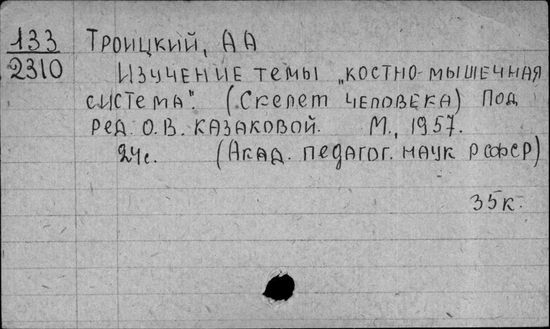 133 Троицкий, А А
2310 Изучение темы „костно-мышечная
система". (Скелет человека) Под
ред. О.В. Казаковой. М., 1957.
24с. (Акад. педагог. наук РСФСР)
35к.